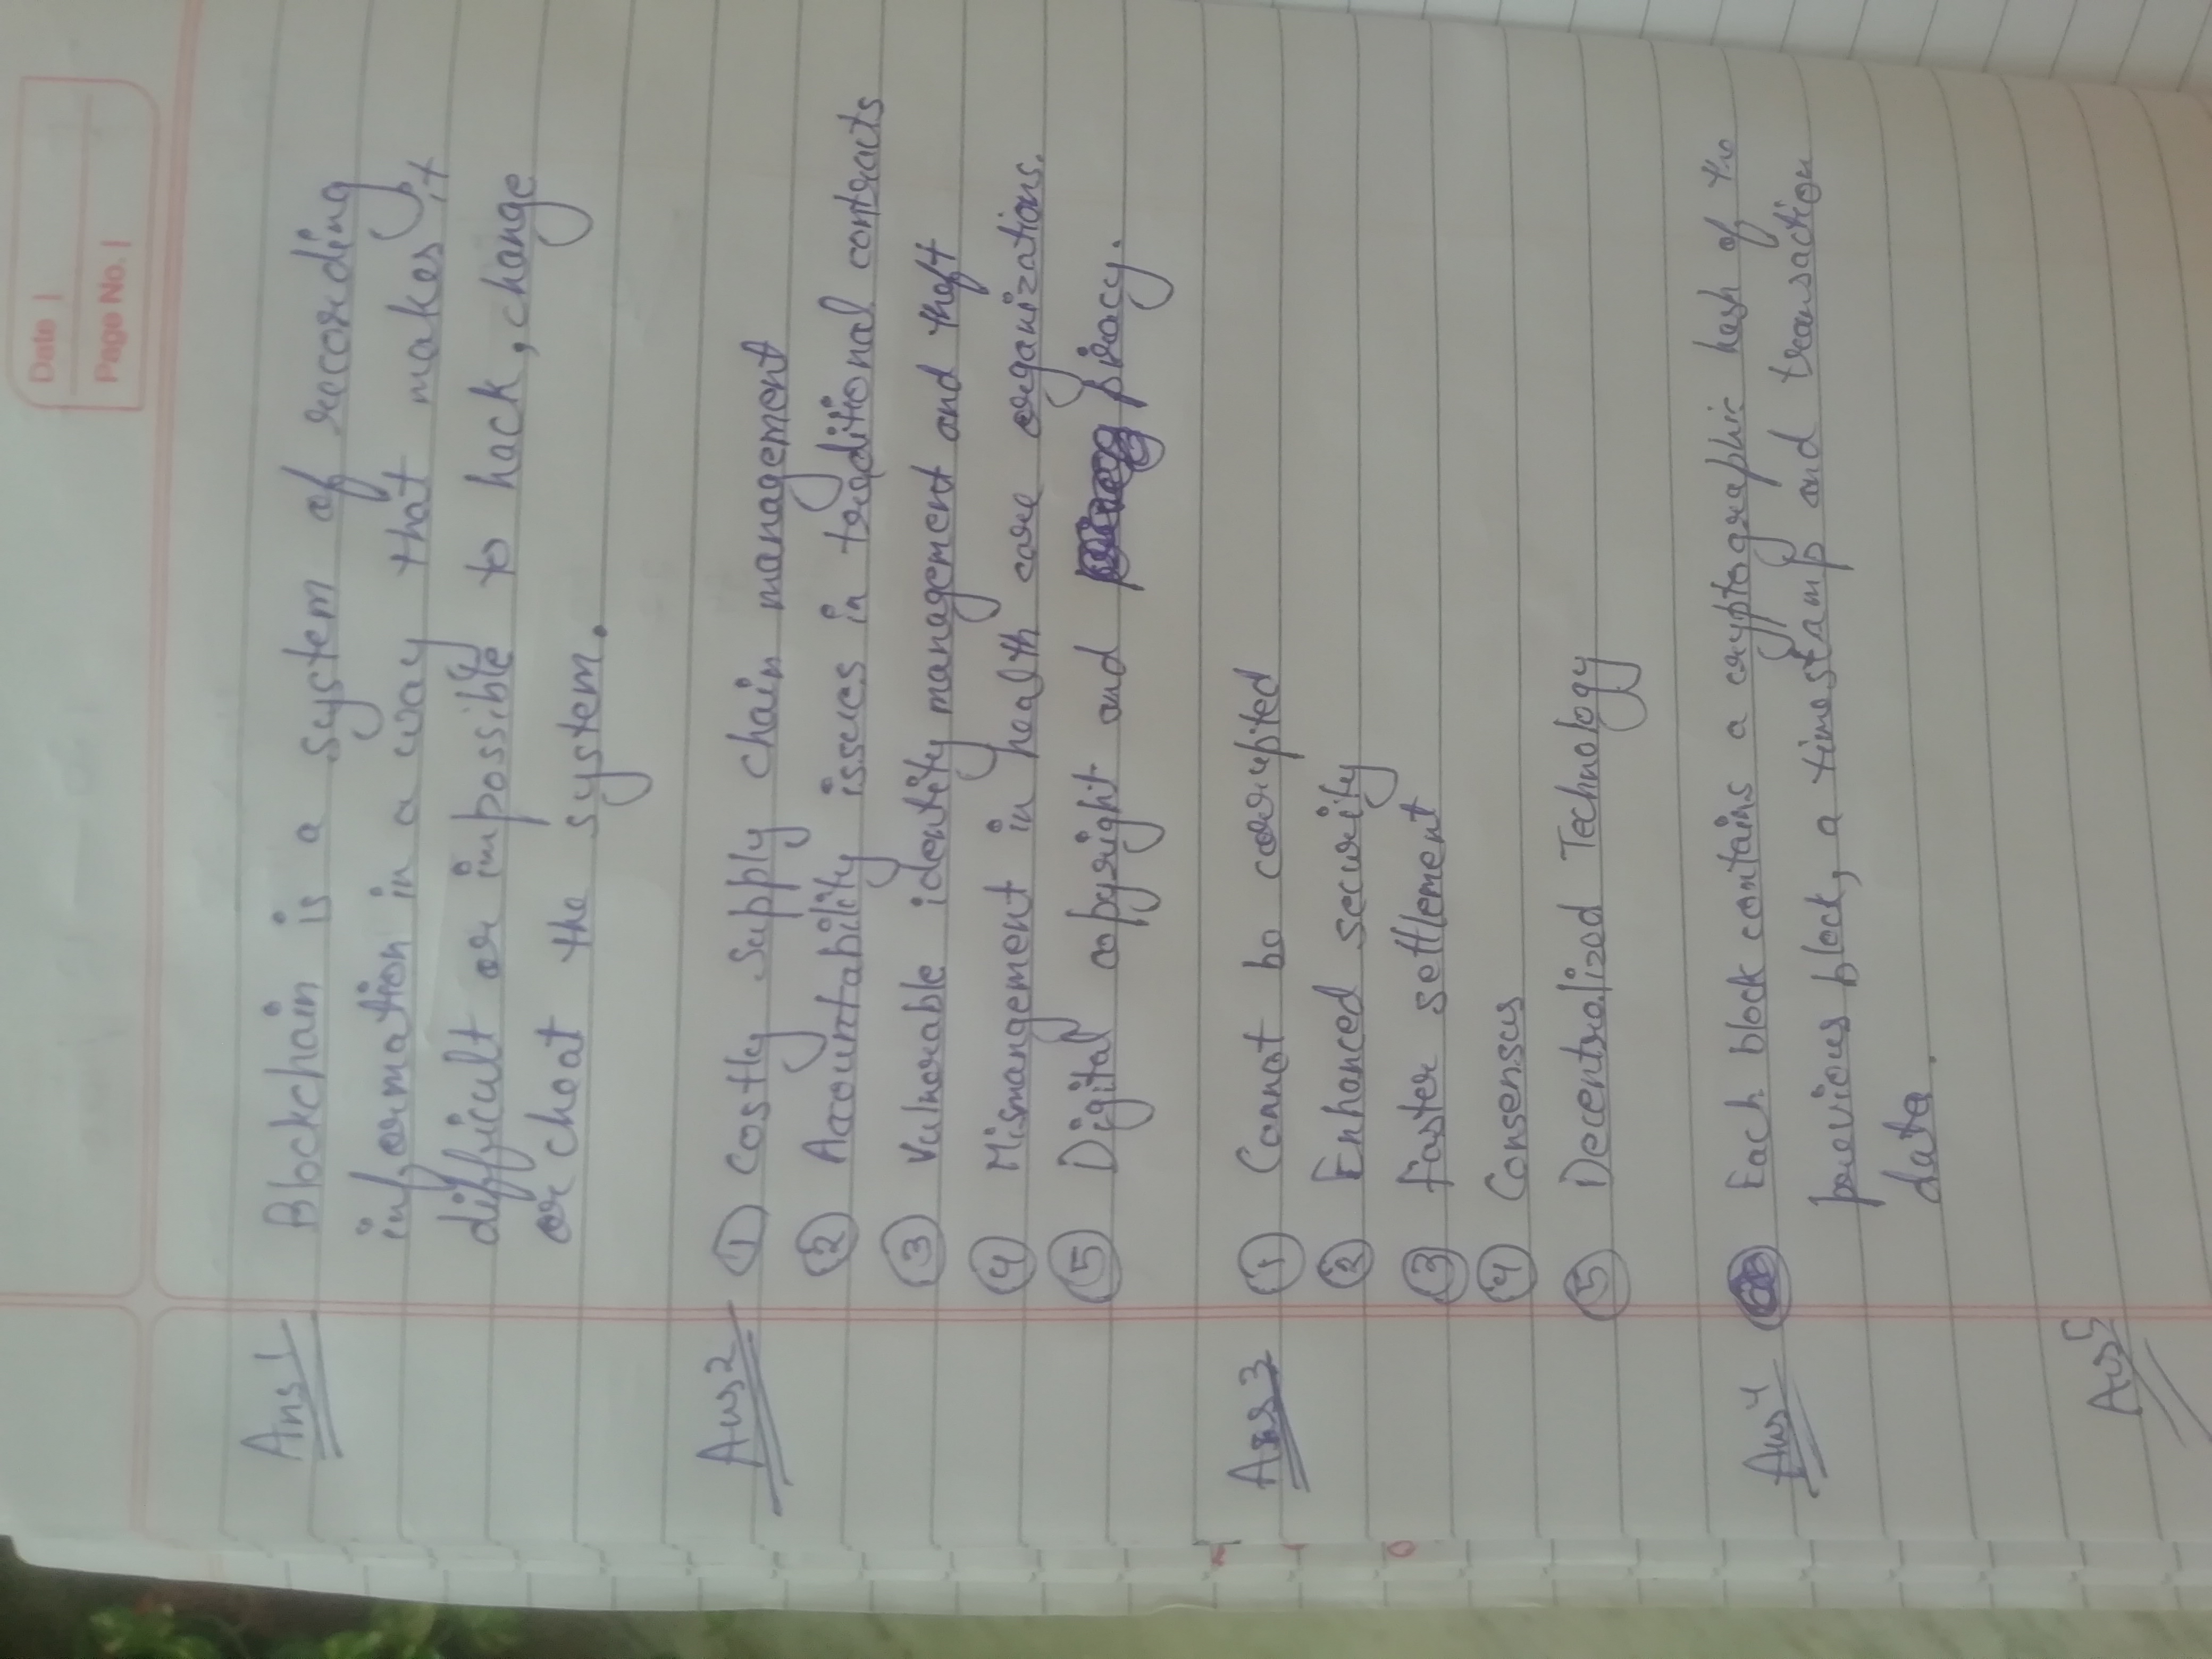 Date |
Page No. |
Ans 1 Blockchain is a system of recording
information in a way that makes it
difficult or impossible to hack, change
or cheat the system.
Ans 2 ① Costly Supply chain management
② Accountability issues in traditional contracts
③ Vulnerable identity management and theft
④ Mismangement in health care organizations.
⑤ Digital copyright and piracy.
Ans 3 ① Cannot be corrupted
② Enhanced security
③ Faster settlement
④ Consensus
⑤ Decentralized Technology
Ans 4 Each block contains a cryptographic hash of the
previous block, a timestamp and transaction
data.
Ans 5